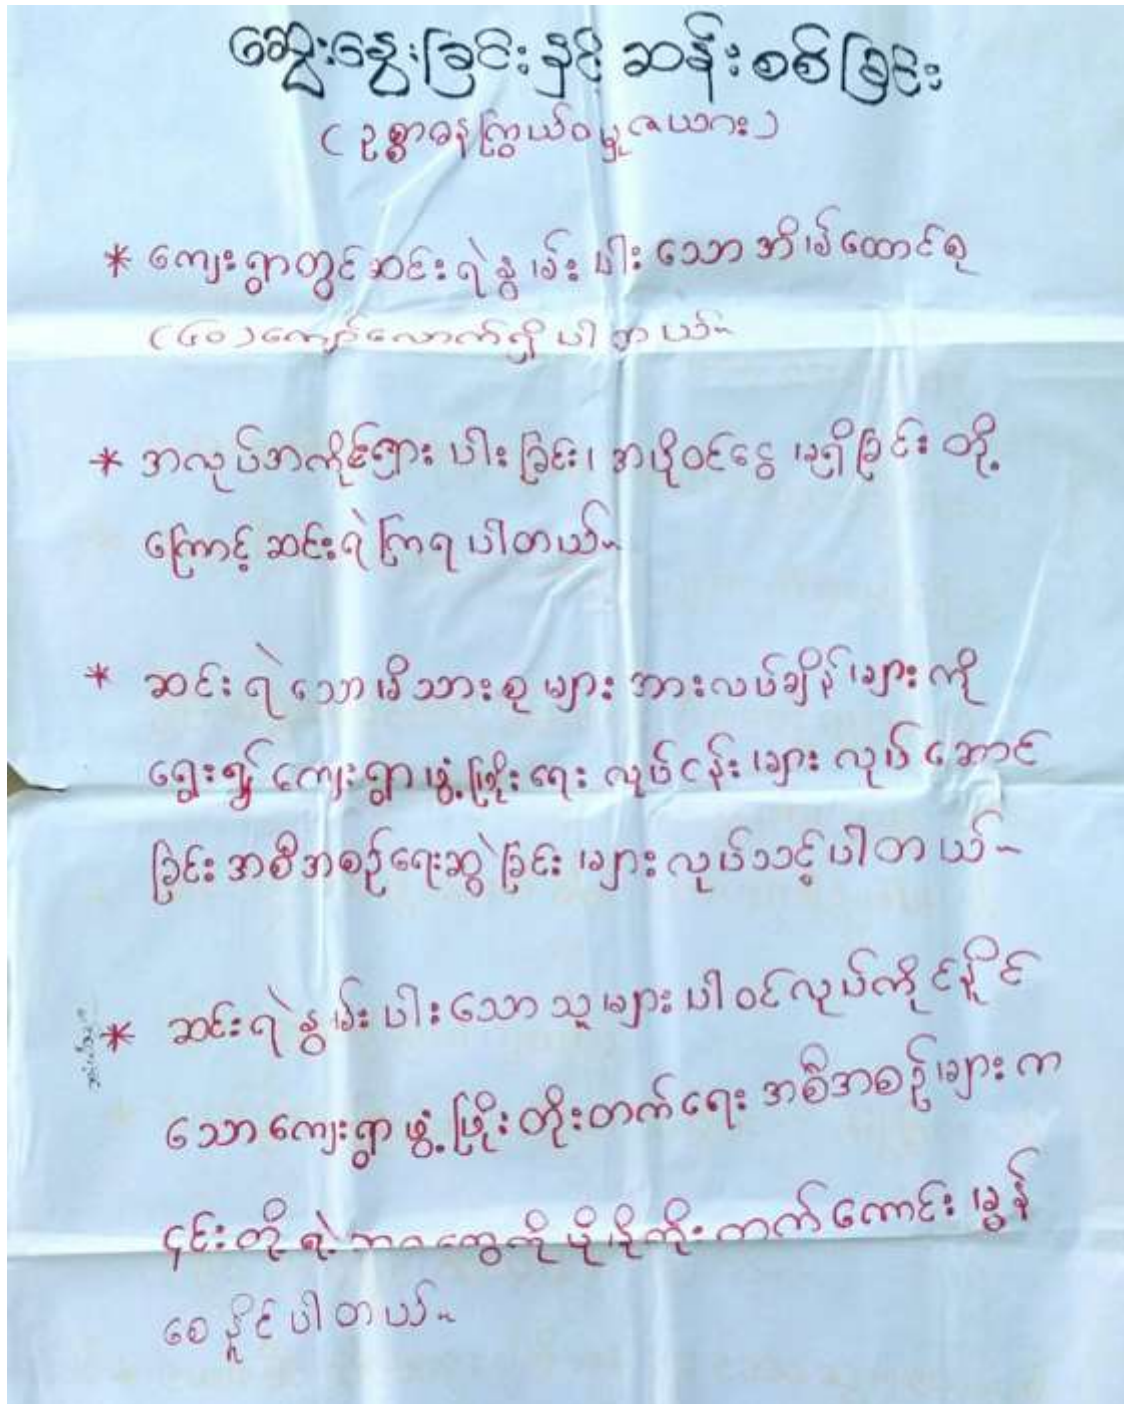 ဆွေးနွေးခြင်းနှင့် ဆန်းစစ်ခြင်း
(ဥစ္စာဓနကြွယ်ဝမှုဇယား)
* ကျေးရွာတွင်ဆင်းရဲနွမ်းပါးသောအိမ်ထောင်စု
(၄၀)ကျော်လောက်ရှိပါတယ်။
* အလုပ်အကိုင်ရှားပါးခြင်း၊ အပိုဝင်ငွေမရှိခြင်းတို့
ကြောင့်ဆင်းရဲကြရပါတယ်။
* ဆင်းရဲသောမိသားစုများ အားလပ်ချိန်များကို
ရွေး၍ကျေးရွာဖွံ့ဖြိုးရေးလုပ်ငန်းများလုပ်ဆောင်
ခြင်းအစီအစဉ်ရေးဆွဲခြင်းများလုပ်သင့်ပါတယ်။
* ဆင်းရဲနွမ်းပါးသောသူများပါဝင်လုပ်ကိုင်နိုင်
သောကျေးရွာဖွံ့ဖြိုးတိုးတက်ရေးအစီအစဉ်များက
၎င်းတို့ရဲ့ဘဝတွေကိုပိုမိုတိုးတက်ကောင်းမွန်
စေနိုင်ပါတယ်။